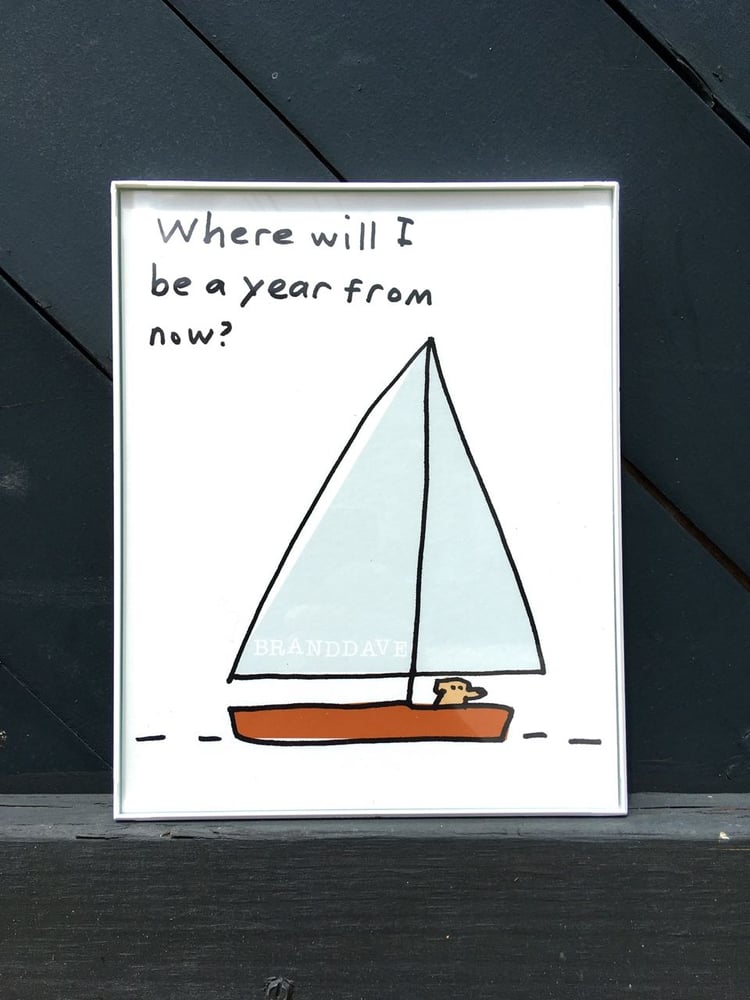 Where will I
be a year from
now?
BRANDDAVE